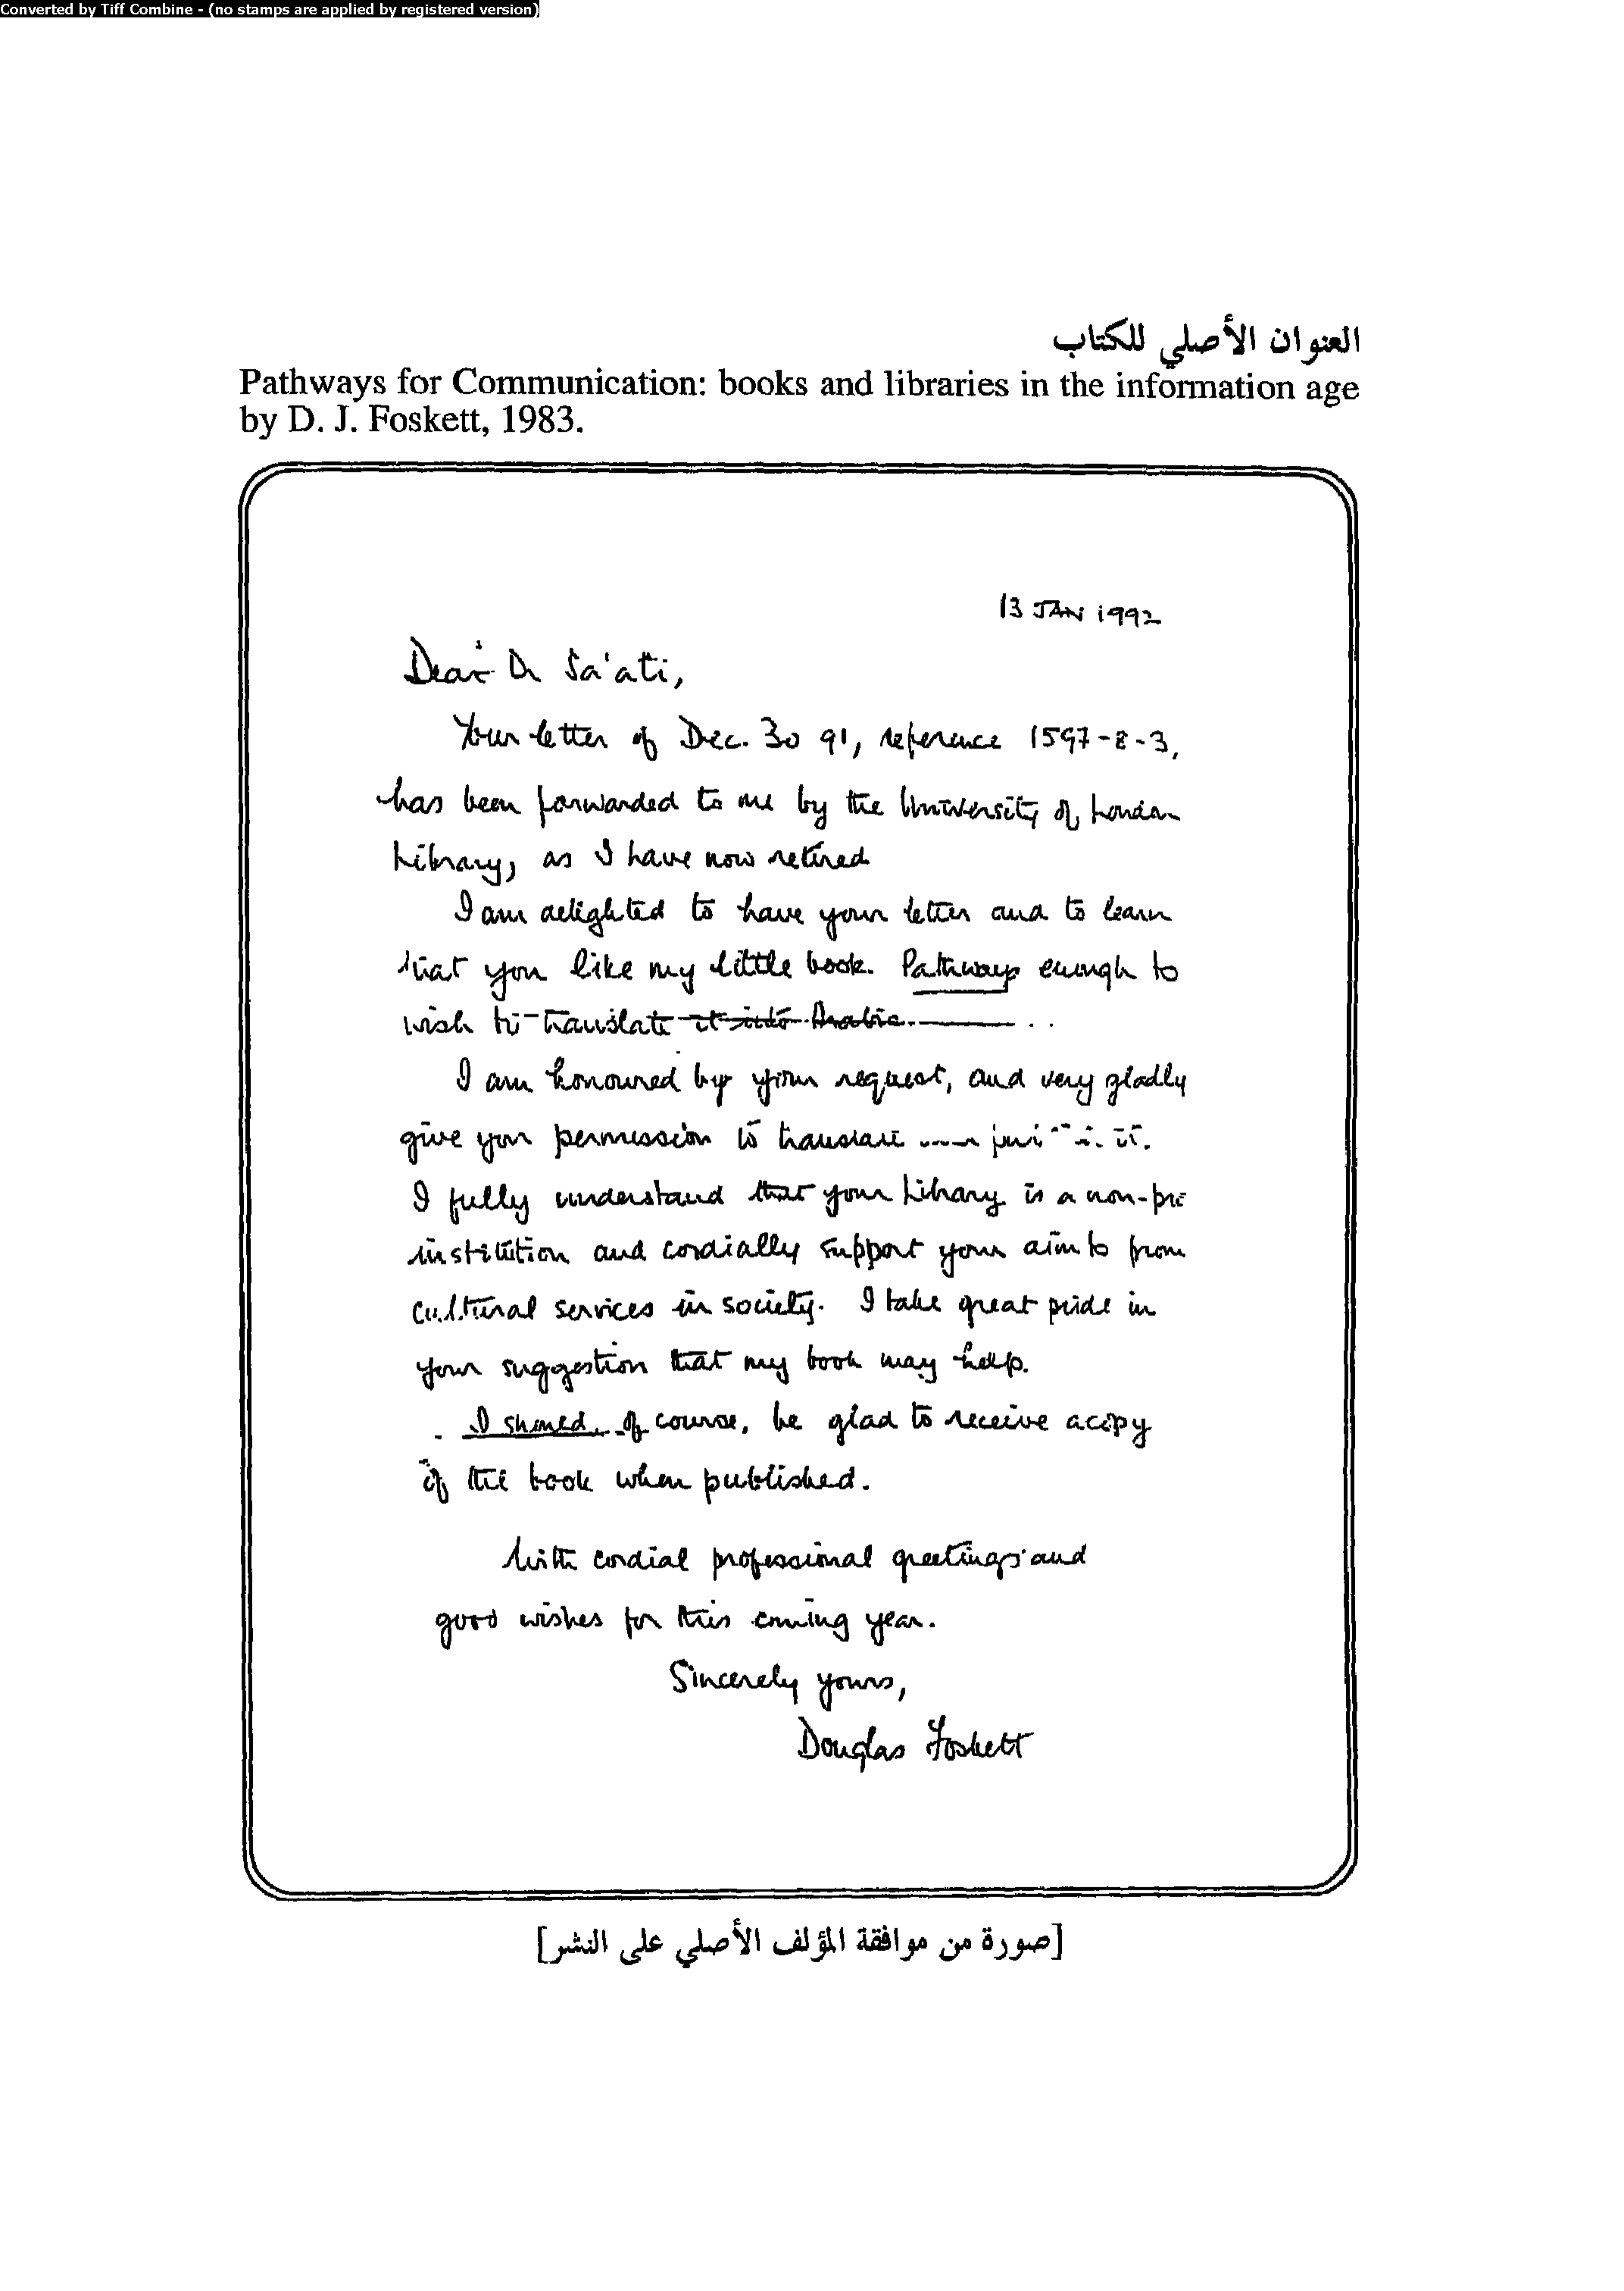 Converted by Tiff Combine - (no stamps are applied by registered version)
العنوان الأصلي للكتاب
Pathways for Communication: books and libraries in the information age
by D. J. Foskett, 1983.
13 JAN 1992
Dear Dr Sa'ati,
Your letter of Dec. 30 91, reference 1597-8-3,
has been forwarded to me by the University of London
Library, as I have now retired
I am delighted to have your letter and to learn
that you like my little book. Pathways enough to
wish to translate it into Arabic
I am honoured by your request, and very gladly
give you permission to translate it.
I fully understand that your Library is a non-
institution and cordially support your aim to
cultural services in society. I take great pride in
your suggestion that my book may help.
I should, of course, be glad to receive a copy
of the book when published.
With cordial professional greetings and
good wishes for this coming year.
Sincerely yours,
Douglas Foskett
[صورة من موافقة المؤلف الأصلي على النشر]